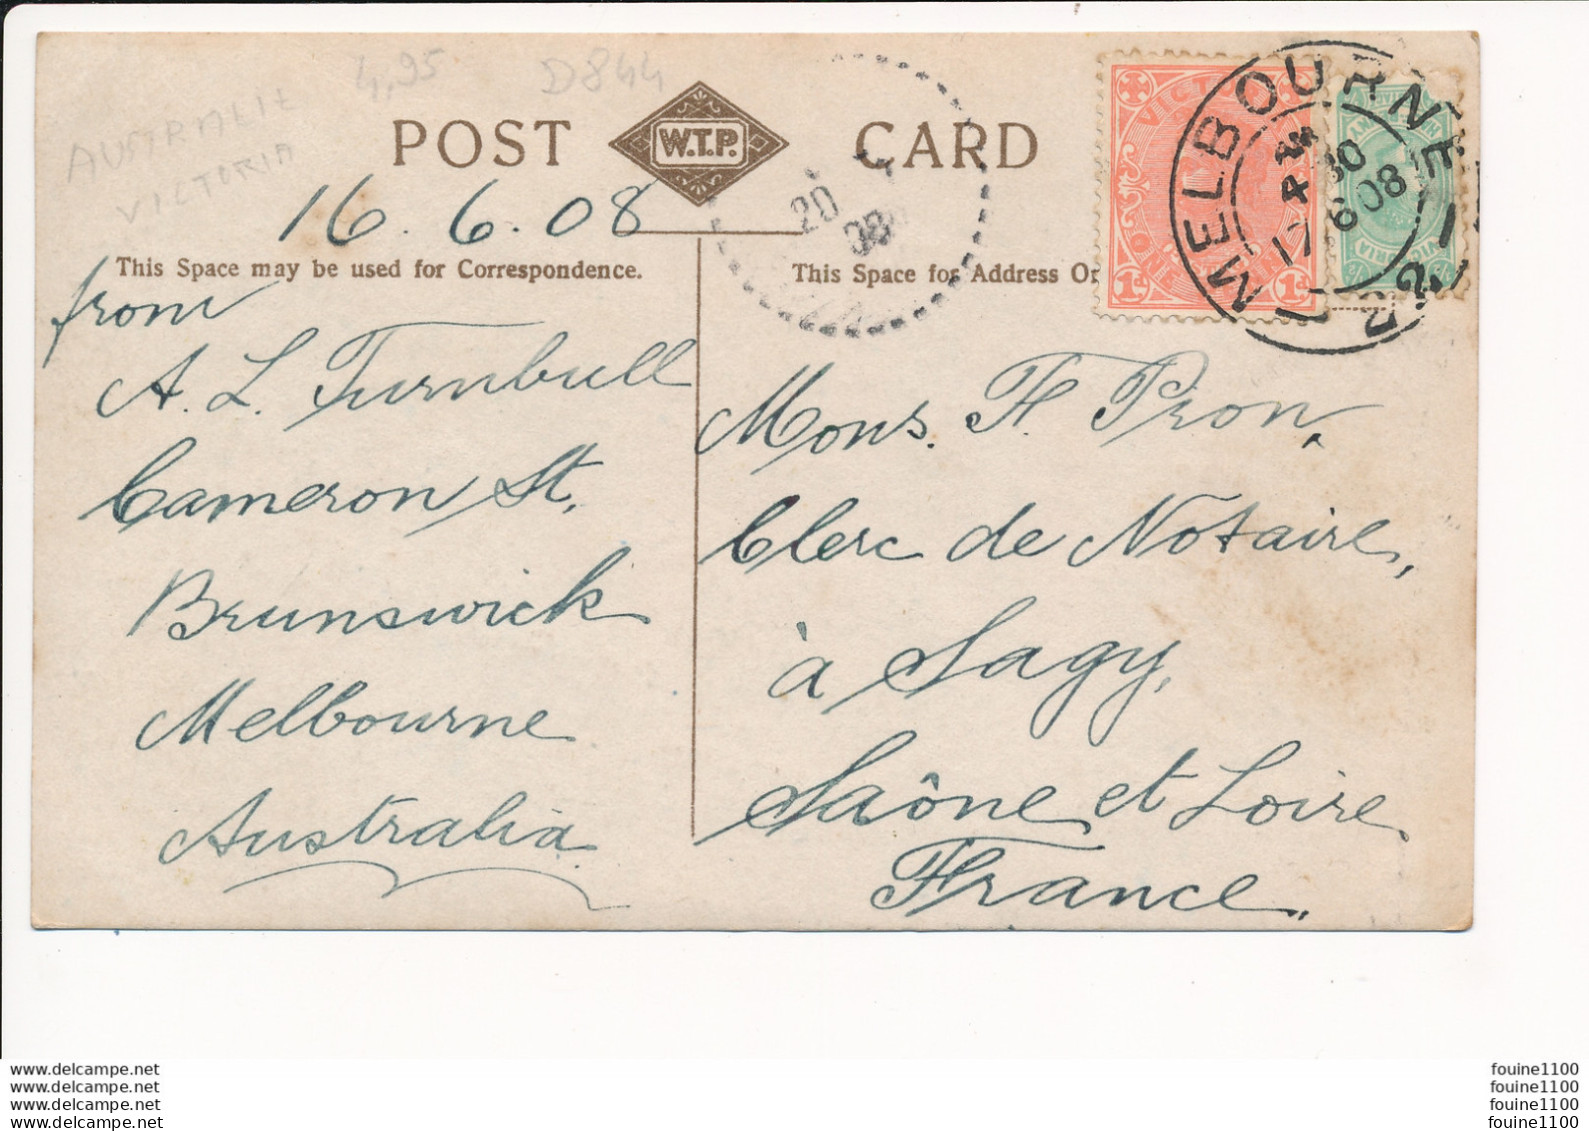 4,95
D844
AUSTRALIE
VICTORIA
POST W.T.P. CARD
16.6.08
20
08
MELBOURNE
4 30
17 6 08
VICTORIA
ONE PENNY
1d 1d
VICTORIA
This Space may be used for Correspondence.
This Space for Address On
from
A. L. Turnbull
Cameron St.
Brunswick
Melbourne
Australia
Mons. F. Pron,
Clerc de Notaire,
à Sagy,
Saône et Loire,
France.
www.delcampe.net
www.delcampe.net
www.delcampe.net
www.delcampe.net
fouine1100
fouine1100
fouine1100
fouine1100